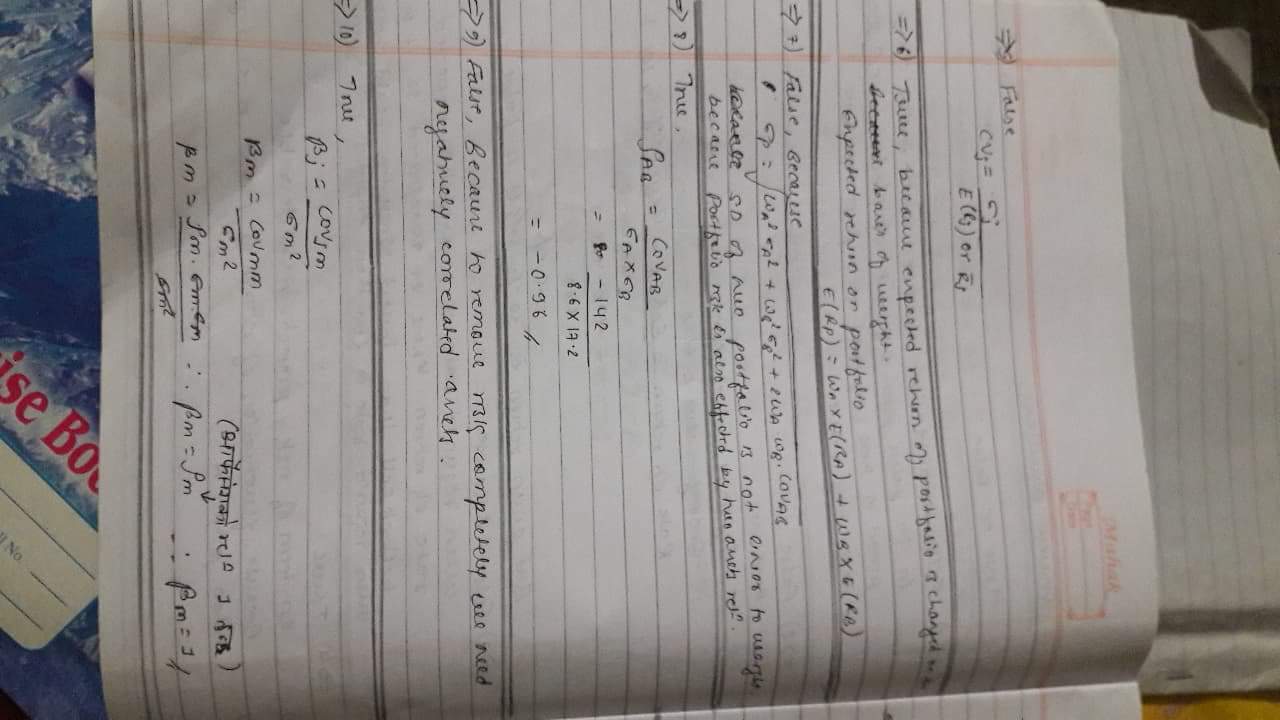 => 5) False
CVj = σj / E(Rj) or R̄j
=> 6) True, because expected return of portfolio is changed on
basis of weight.
Expected return on portfolio
E(RP) = WA x E(RA) + WB x E(RB)
=> 7) False, because
σp = √WA² σA² + WB² σB² + 2WA WB. COVAB
SD of two portfolio is not
because portfolio risk is also effected by two assets relⁿ.
=> 8) True,
ρAB = COVAB / σA x σB
= -142 / 8.6 x 17.2
= -0.96 //
=> 9) False, Because to remove risk completely we need
negatively correlated assets.
=> 10) True,
βj = COVjm / σm²
βm = COVmm / σm²
βm = ρm. σm. σm / σm² ∴ βm = ρm ∴ βm = 1 //
ise Boo
ll No.